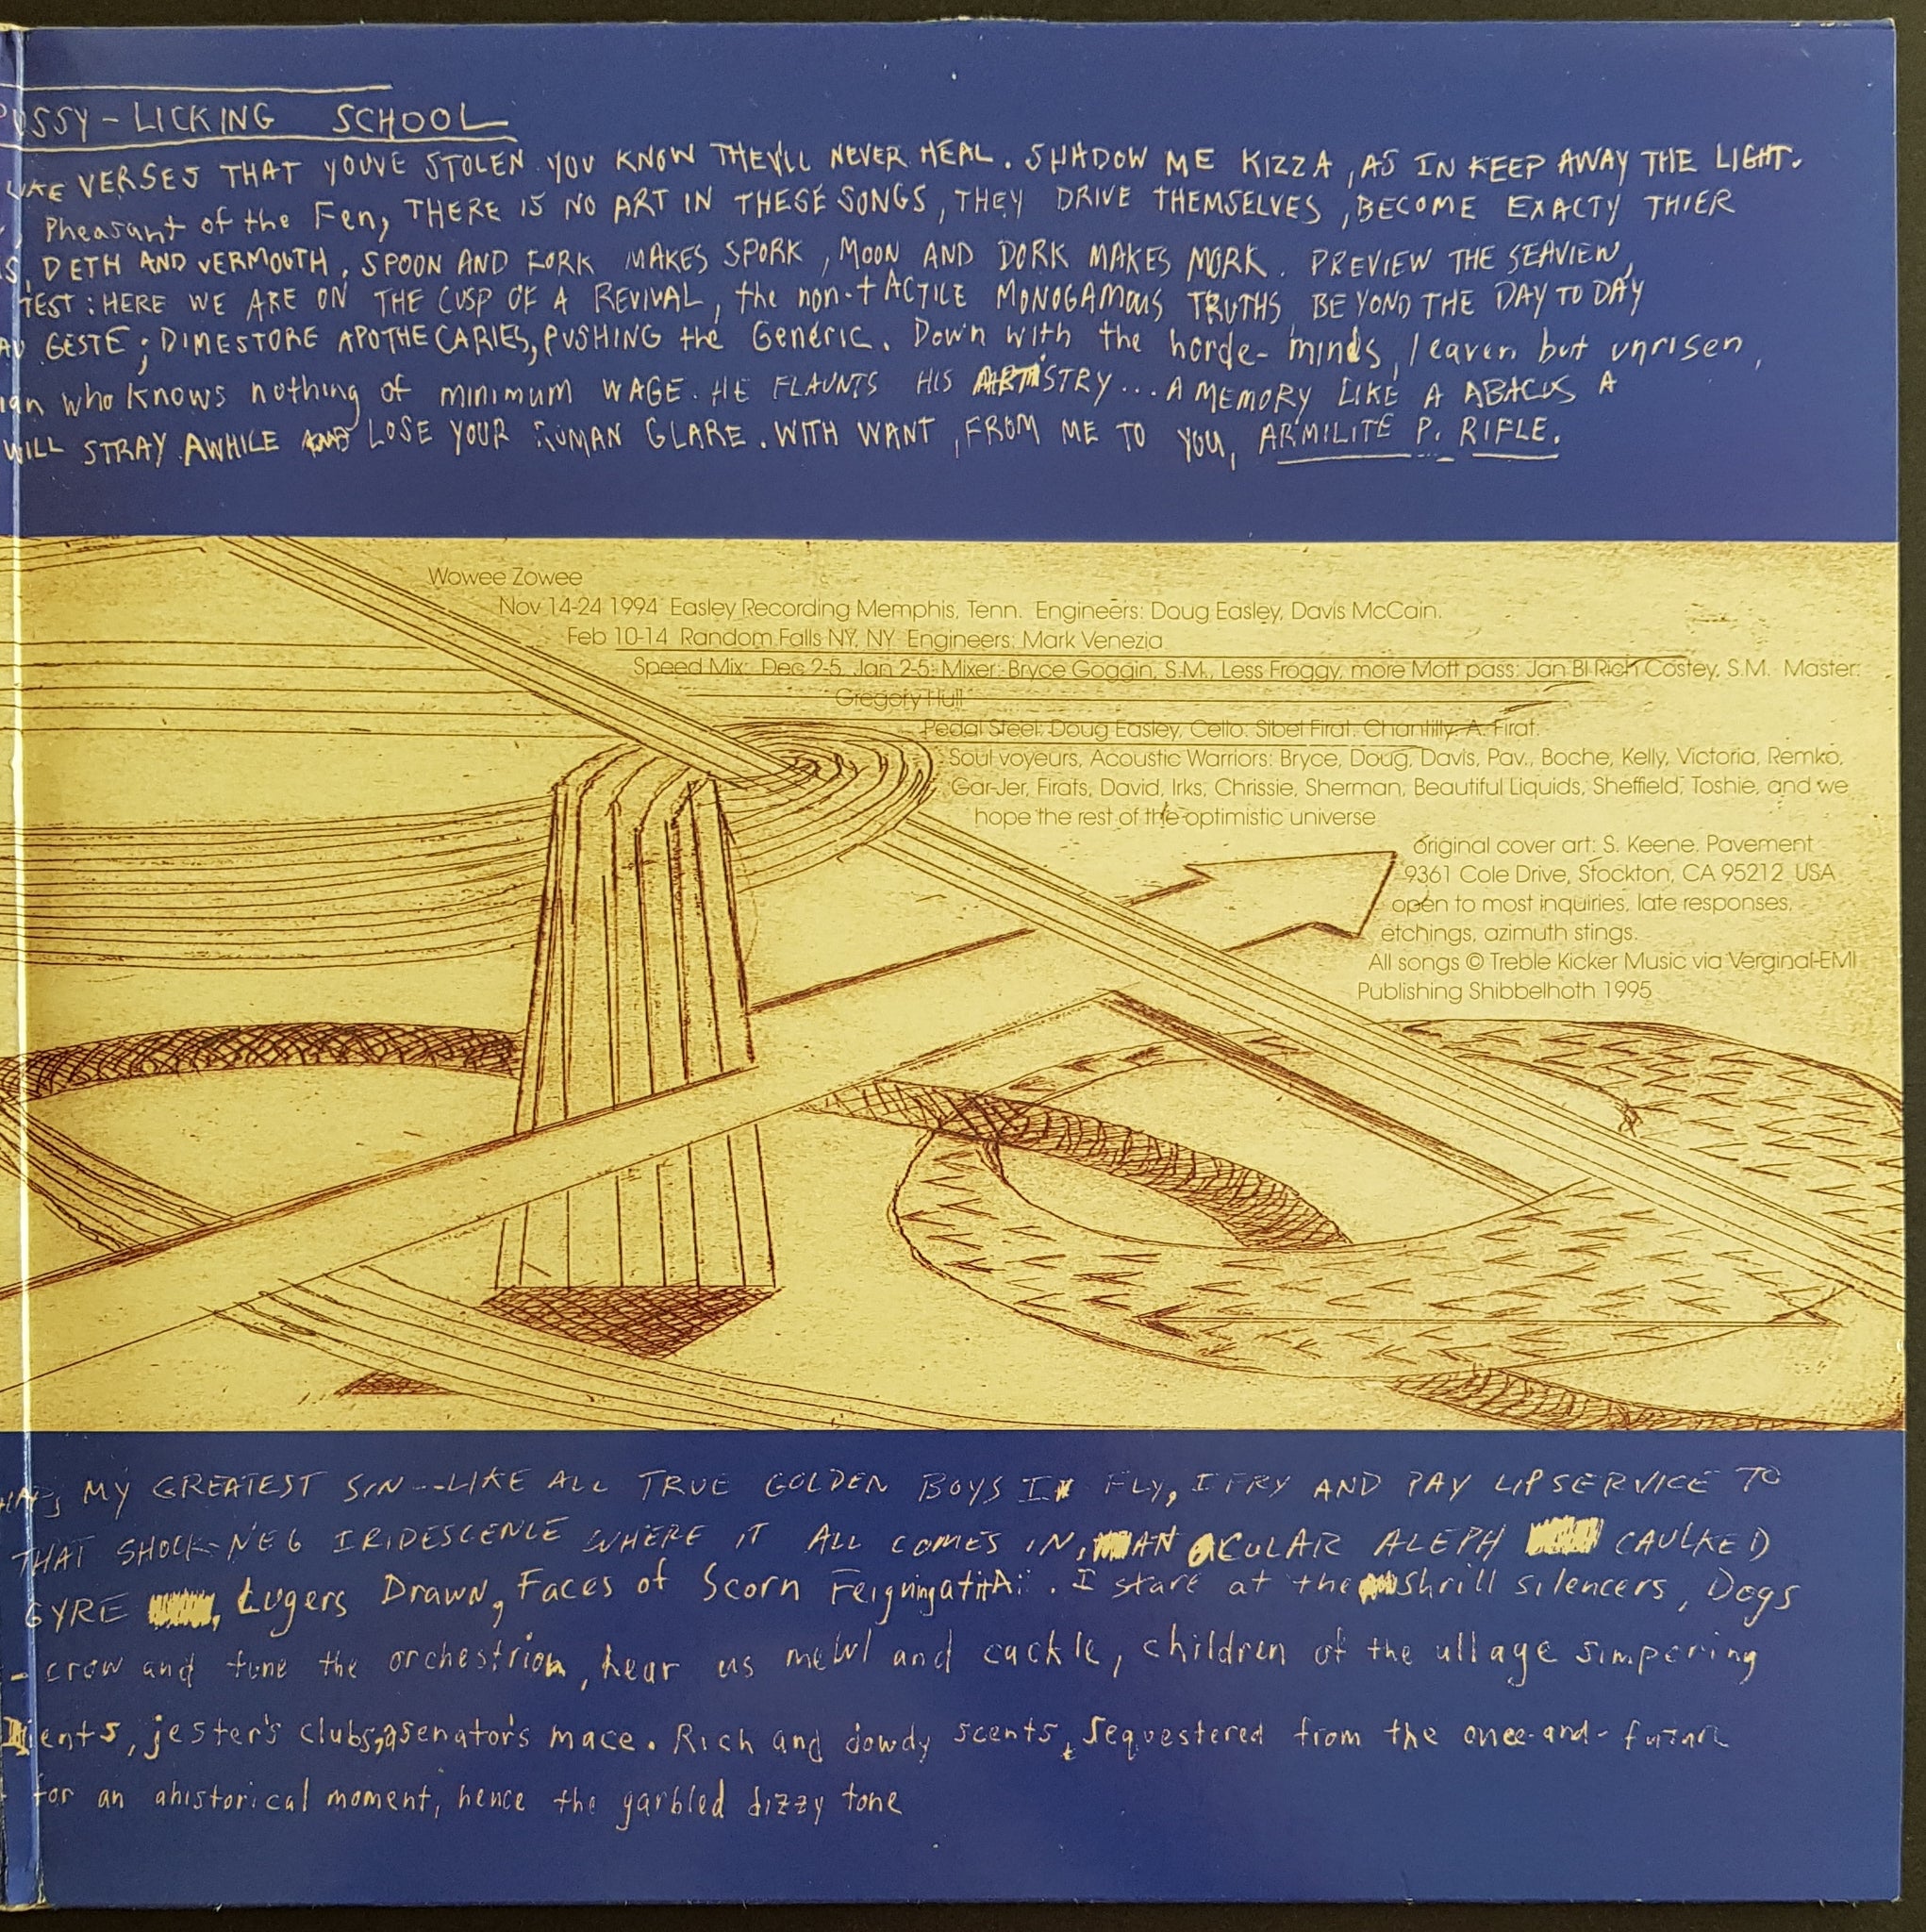 PUSSY-LICKING SCHOOL
LIKE VERSES THAT YOUVE STOLEN YOU KNOW THEYLL NEVER HEAL. SHADOW ME KIZZA, AS IN KEEP AWAY THE LIGHT.
Pheasant of the Fen, THERE IS NO ART IN THESE SONGS, THEY DRIVE THEMSELVES, BECOME EXACTY THIER
S, DETH AND VERMOUTH. SPOON AND FORK MAKES SPORK, MOON AND DORK MAKES MORK. PREVIEW THE SEAVIEW,
TEST: HERE WE ARE ON THE CUSP OF A REVIVAL, the non-tACTILE MONOGAMOUS TRUTHS BEYOND THE DAY TO DAY
AU GESTE; DIMESTORE APOTHECARIES, PUSHING the Generic. Down with the horde-minds, leaven but unrisen,
ian who knows nothing of minimum WAGE. HE FLAUNTS HIS ARTISTRY... A MEMORY LIKE A ABACUS A
WILL STRAY AWHILE AND LOSE YOUR ROMAN GLARE. WITH WANT, FROM ME TO YOU, ARMILITE P. RIFLE.
Wowee Zowee
Nov 14-24 1994 Easley Recording Memphis, Tenn. Engineers: Doug Easley, Davis McCain.
Feb 10-14 Random Falls NY, NY Engineers: Mark Venezia
Speed Mix: Dec 2-5, Jan 2-5: Mixer: Bryce Goggin, S.M., Less Froggy, more Mott pass: Jan Bl Rich Costey, S.M. Master:
Gregory Hull
Pedal Steel: Doug Easley, Cello: Sibel Firat. Chantilly: A. Firat.
Soul voyeurs, Acoustic Warriors: Bryce, Doug, Davis, Pav., Boche, Kelly, Victoria, Remko,
Gar-Jer, Firats, David, Irks, Chrissie, Sherman, Beautiful Liquids, Sheffield, Toshie, and we
hope the rest of the optimistic universe
original cover art: S. Keene. Pavement
9361 Cole Drive, Stockton, CA 95212 USA
open to most inquiries, late responses,
etchings, azimuth stings.
All songs © Treble Kicker Music via Verginal-EMI
Publishing Shibbelhoth 1995
MY GREATEST SIN--LIKE ALL TRUE GOLDEN BOYS I FLY, I FRY AND PAY LIPSERVICE TO
THAT SHOCK-NEG IRIDESCENCE WHERE IT ALL COMES IN, AN OCULAR ALEPH CAULKED
GYRE, Lugers Drawn, Faces of Scorn Feigning I stare at the shrill silencers, Dogs
- crow and tune the orchestrion, hear us mewl and cackle, children of the ullage simpering
ients, jester's clubs, a senator's mace. Rich and dowdy scents, sequestered from the once-and-future
for an ahistorical moment, hence the garbled dizzy tone